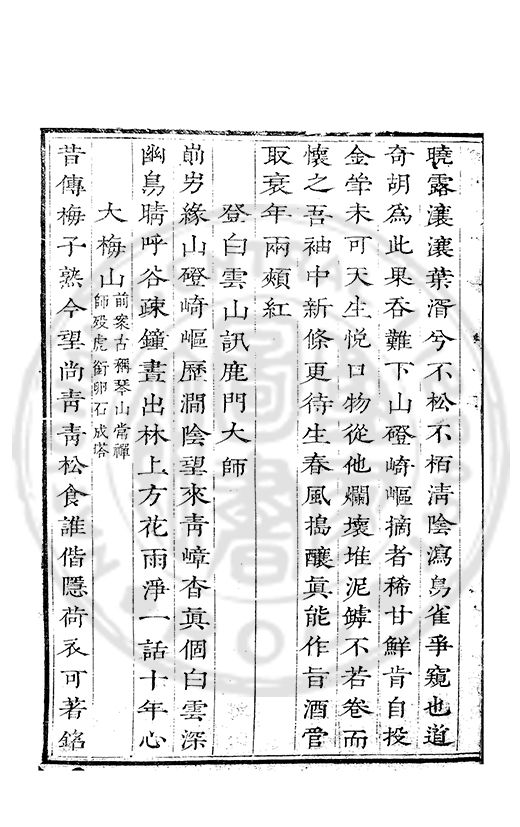 曉露瀼瀼葉湑兮不松不栢淸陰瀉鳥雀爭窺也道
奇胡爲此果吞難下山磴崎嶇摘者稀甘鮮肯自投
金㡳未可天生悅口物從他爛壞堆泥罅不若卷而
懷之吾袖中新條更待生春風搗釀眞能作旨酒管
取衰年兩頰紅
登白雲山訊鹿門大師
前岁緣山磴崎嶇歷澗陰望來靑嶂杳眞個白雲深
幽鳥晴呼谷疎鐘晝出林上方花雨淨一話十年心
大梅山
前案古稱琴山常禪
師歿虎銜卵石成塔
昔傳梅子熟今望尚靑靑松食誰偕隱荷衣可著銘